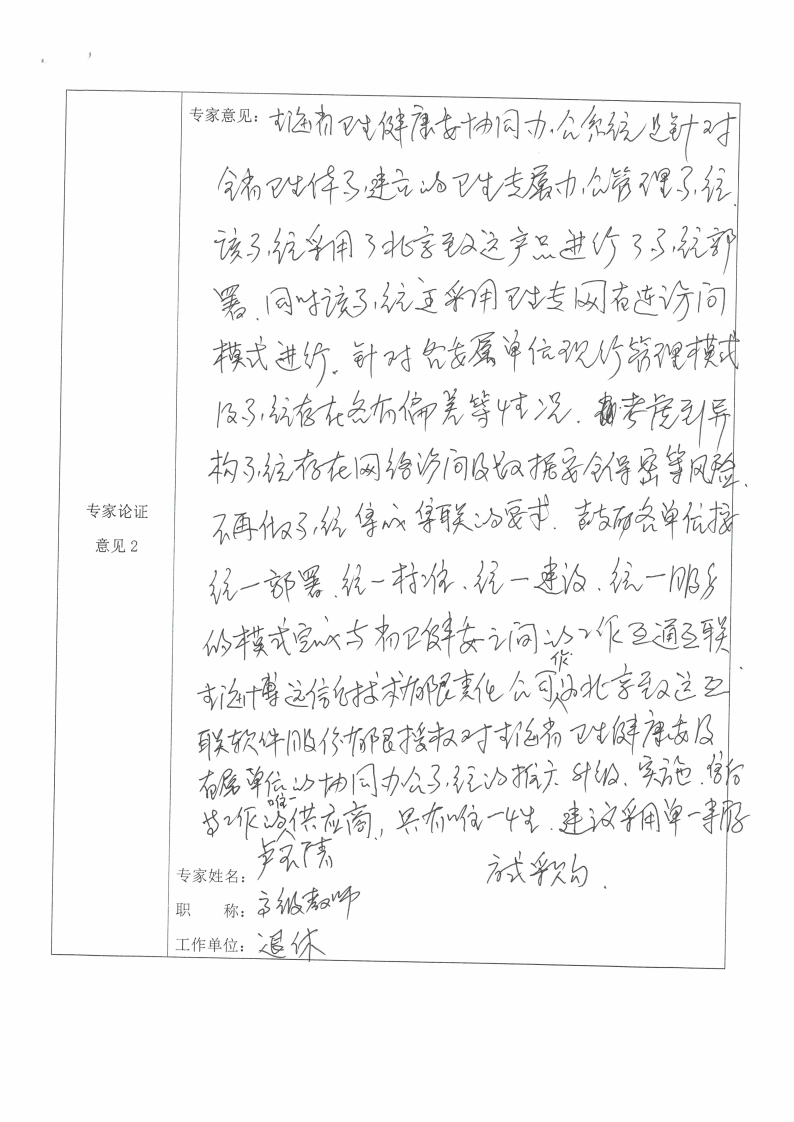 专家论证
意见2
专家意见：青海省卫生健康委协同办公系统是针对
全省卫生体系建立的卫生专属办公管理系统.
该系统采用了北京致远产品进行了系统部
署、同时该系统还采用卫生专网直连访问
模式进行。针对各委属单位现行管理模式
及系统存在各有偏差等情况. 考虑到异
构系统存在网络访问及数据安全保密等风险、
不再做系统集成集联的要求. 鼓励各单位按
统一部署、统一标准、统一建设、统一服务
的模式完成与省卫健委之间的工作互通互联.
青海博远信息技术有限责任公司作为北京致远互
联软件股份有限授权对青海省卫生健康委及
直属单位的协同办公系统的推广、升级、实施、
等工作的唯一供应商，具有唯一性. 建议采用单一来源
方式采购.
专家姓名：
职 称：高级教师
工作单位：退休